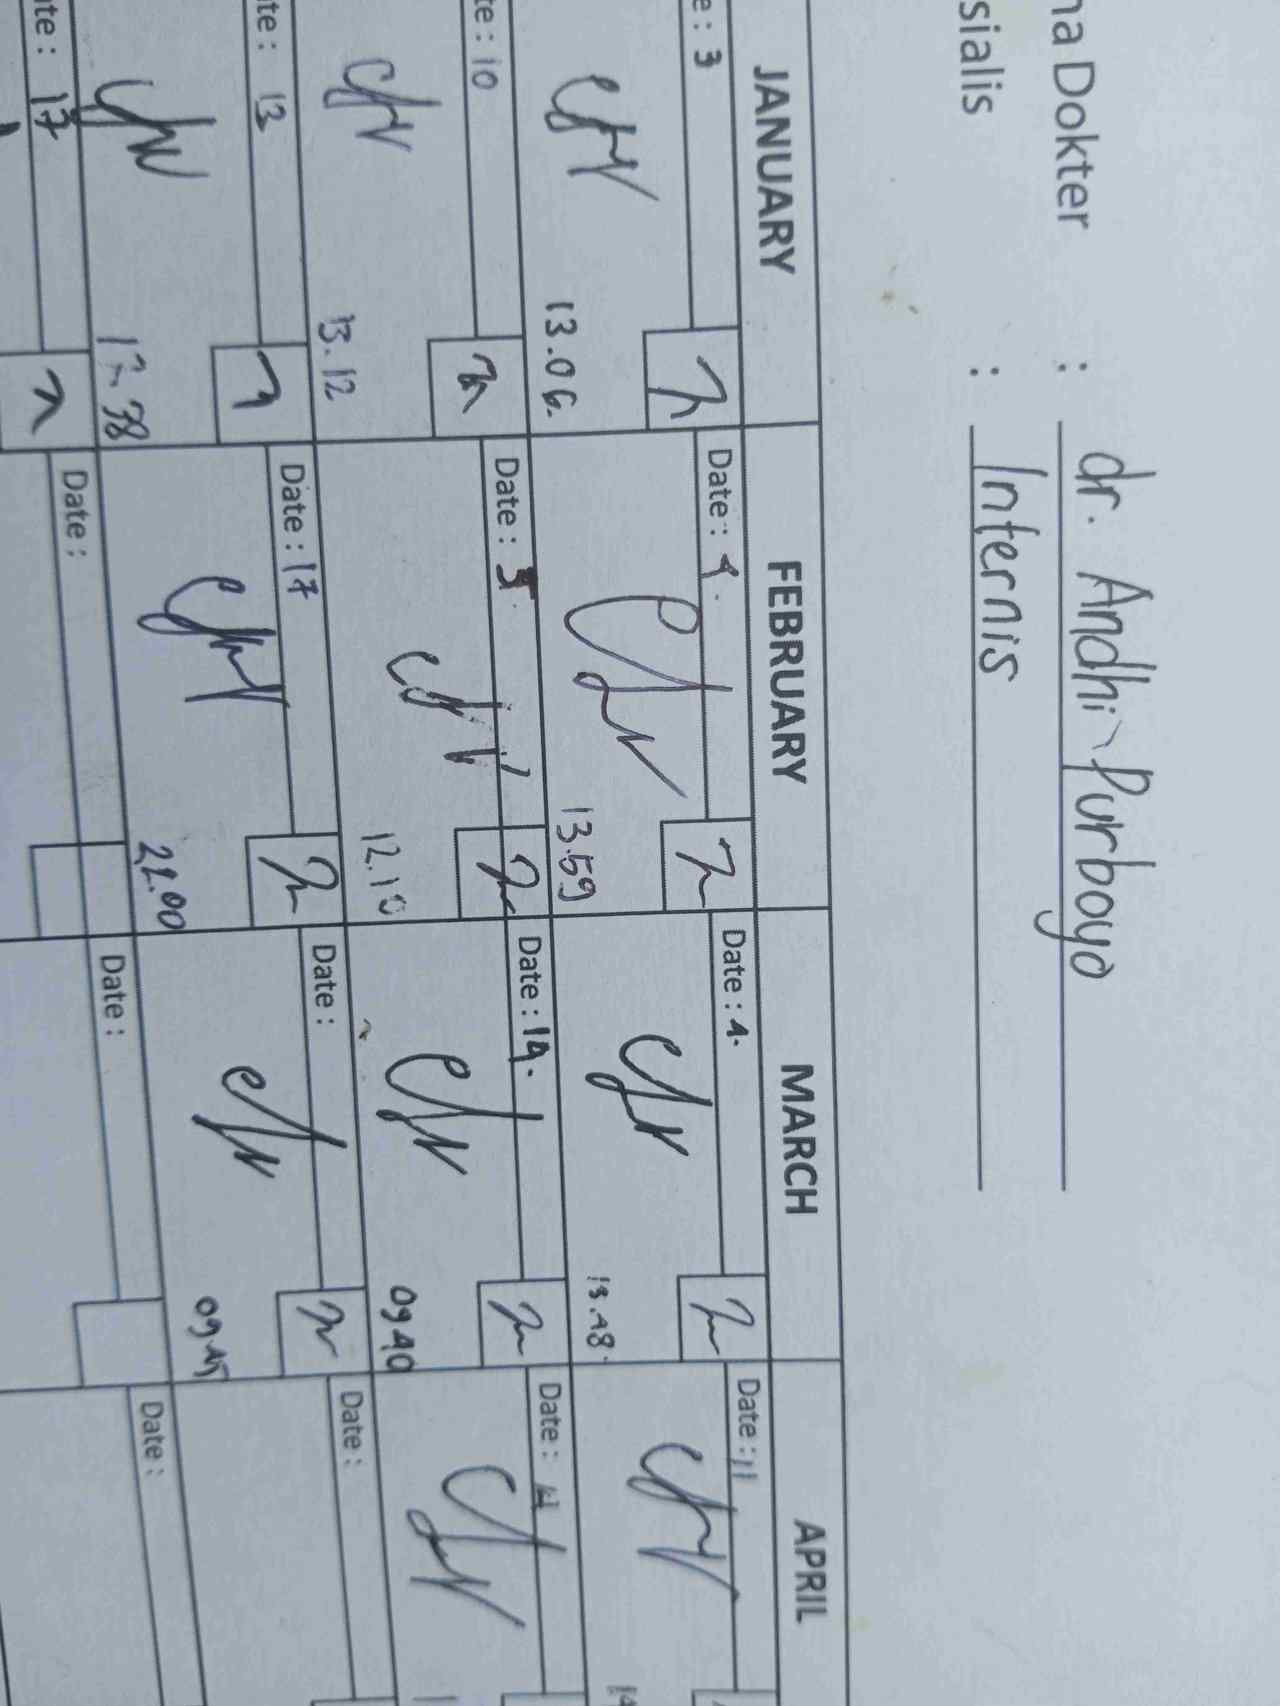 na Dokter : dr. Andhi Purboyo
sialis : Internis
JANUARY FEBRUARY MARCH APRIL
e : 3 Date : 4. Date : 4. Date : 11
13.06. 13.59 13.48.
te : 10 Date : 5 Date : 14. Date :
13.12 12.10 09 40
te : 13 Date : 17 Date : Date :
22.00 09 45
ate : 17 Date : Date : Date :